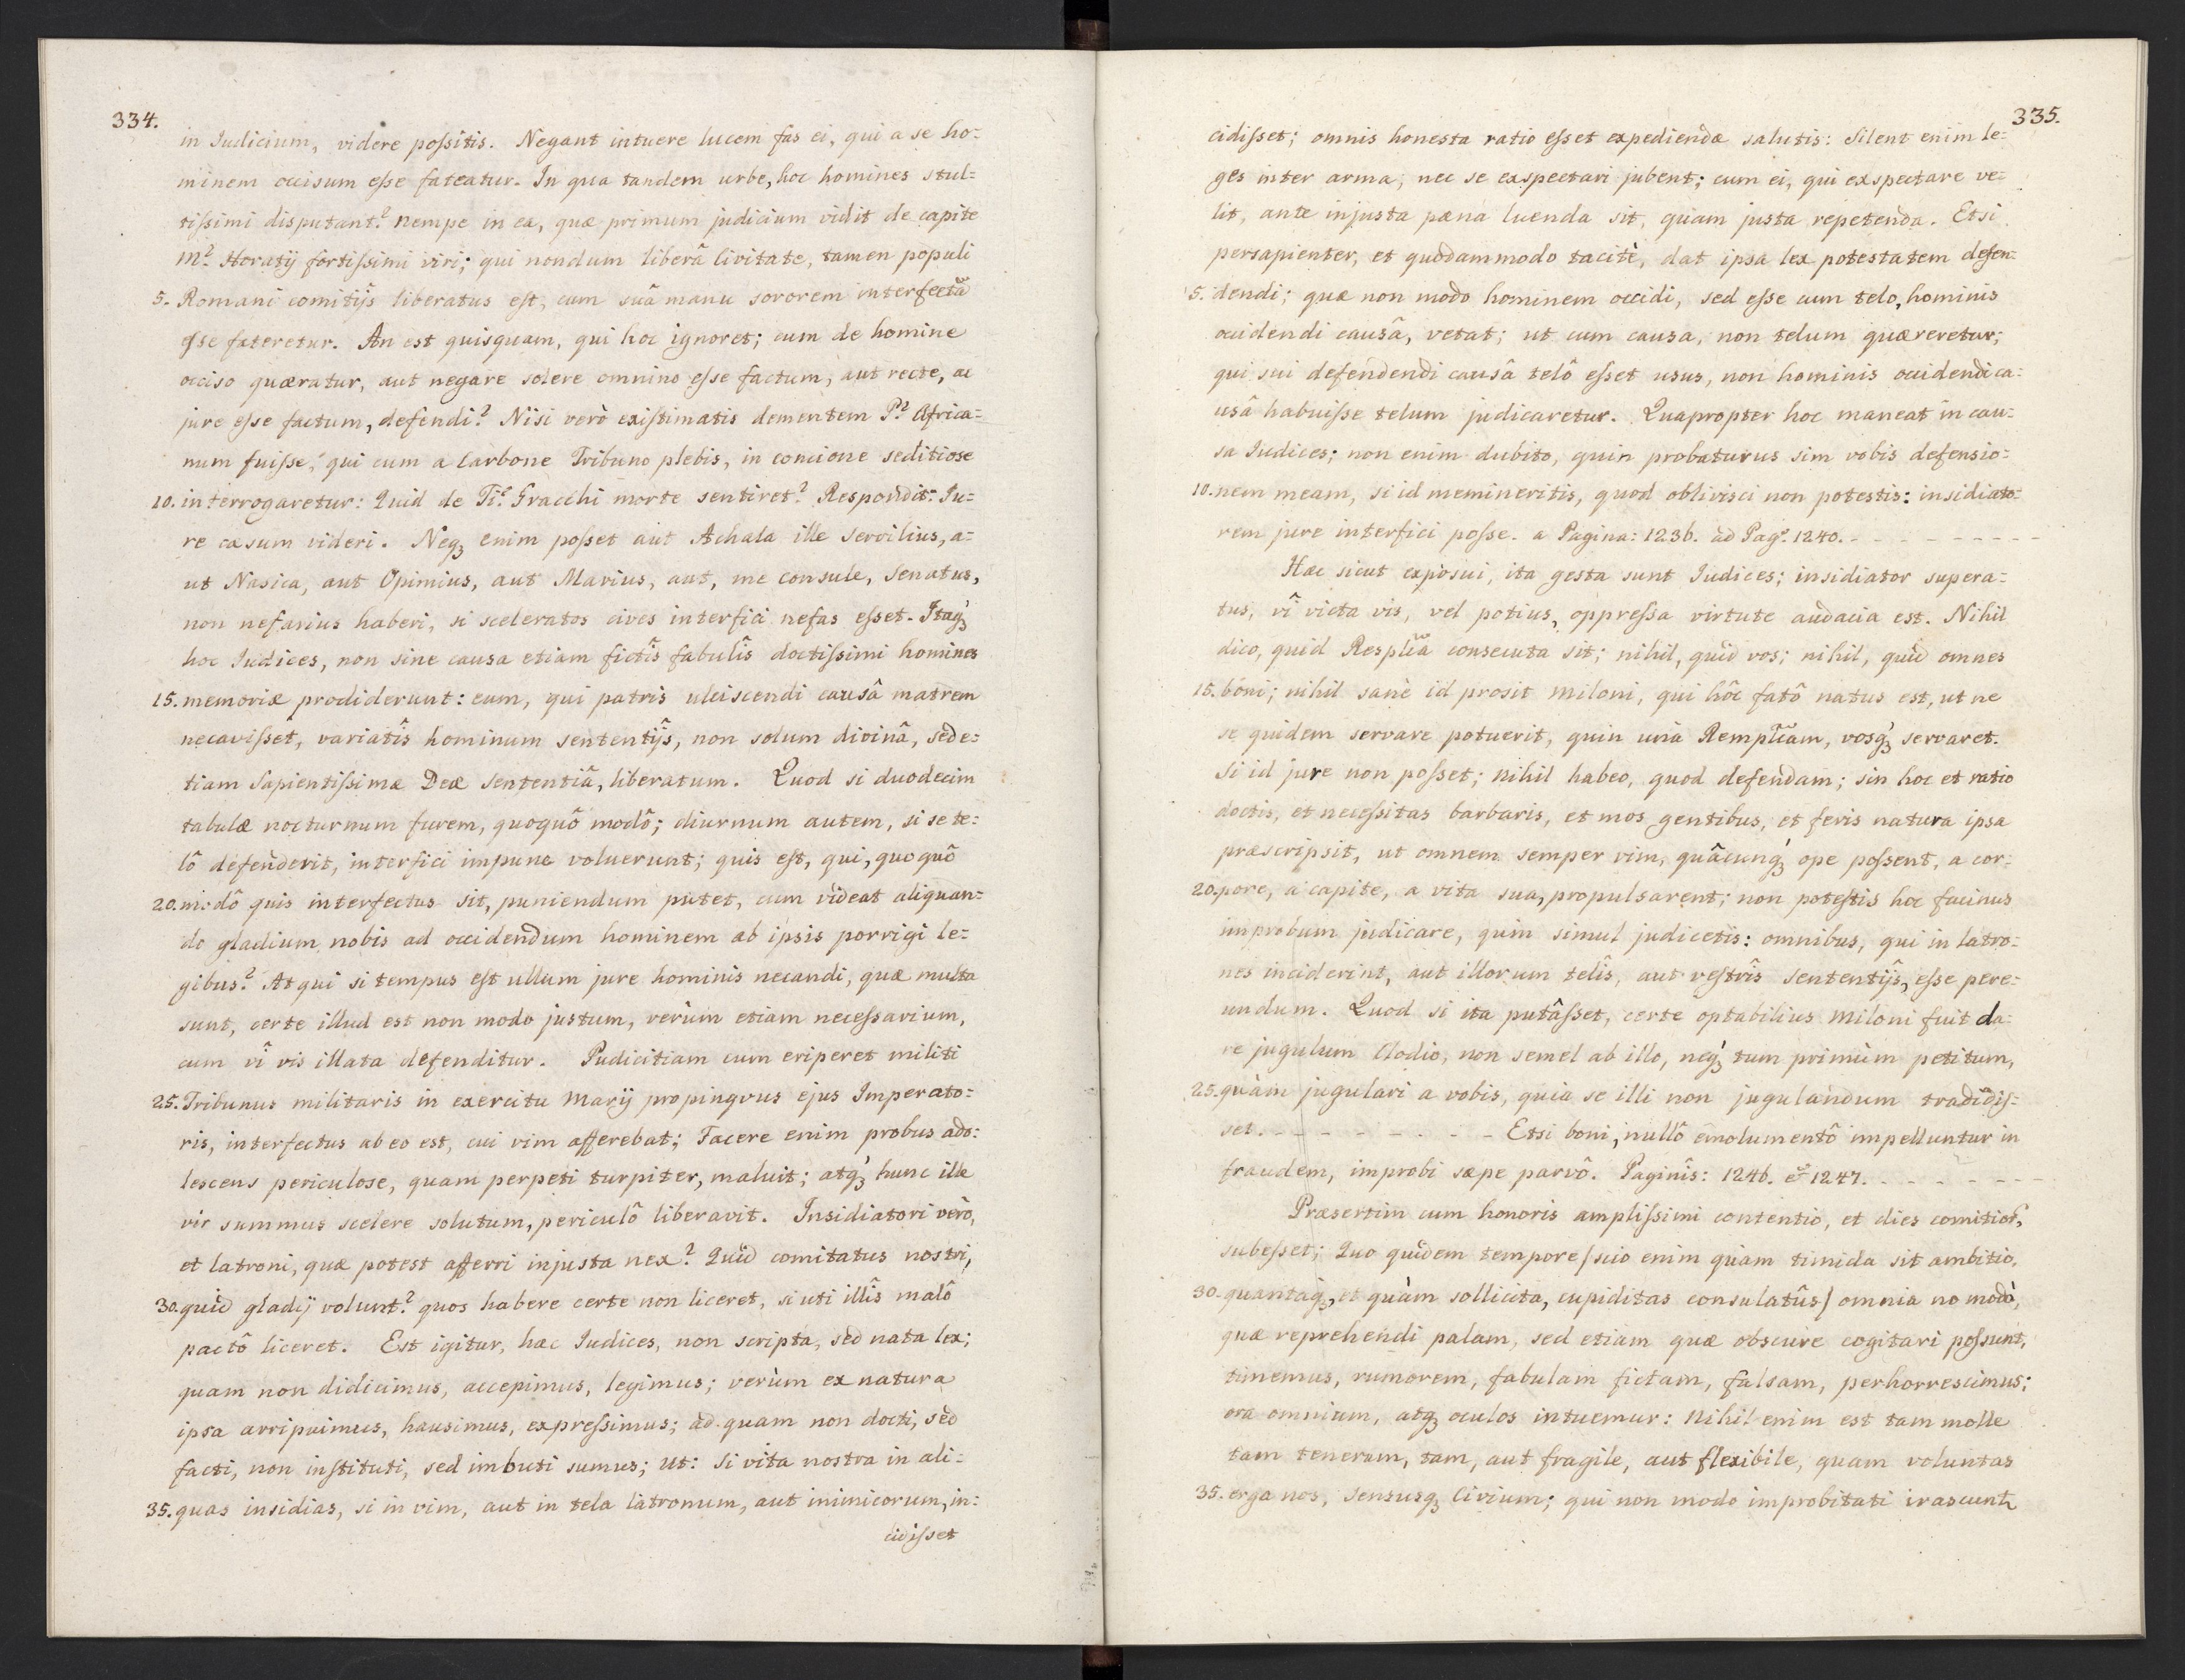 334.
in Iudicium, videre poſsitis. Negant intuere lucem fas ei, qui a se ho=
minem occisum eſse fateatur. In qua tandem urbe, hoc homines stul=
tiſsimi disputant? nempe in ea, quæ primum judicium vidit de capite
M? Horatij fortiſsimi viri; qui nondum liberâ Civitate, tamen populi
5. Romani comitijs liberatus eſt, cum suâ manu sororem interfectã
eſse fateretur. An est quisquam, qui hoc ignoret; cum de homine
occiso quæratur, aut negare solere omnino eſse factum, aut recte, ac
jure eſse factum, defendi? Nisi verò exiſtimatis dementem P? Africa=
num fuiſse, qui cum a Carbone Tribuno plebis, in concione seditiose
10. interrogaretur: Quid de Ti? Gracchi morte sentiret? Respondit: Iu=
re cæsum videri. Neqȝ enim poſset aut Achala ille Servilius, a=
ut Nasica, aut Opimius, aut Marius, aut, me Consule, Senatus,
non nefarius haberi, si sceleratos cives interfici nefas eſset. Itaqȝ
hoc Iudices, non sine causa etiam fictîs fabulîs doctiſsimi homines
15. memoriæ prodiderunt: eum, qui patris ulciscendi causâ matrem
necaviſset, variatîs hominum sententijs, non solum divinâ, sed e=
tiam Sapientiſsimæ Deæ sententiâ, liberatum. Quod si duodecim
tabulæ nocturnum furem, quoquô modô; diurnum autem, si se te=
lô defenderit, interfici impune voluerunt; quis eſt, qui, quoquô
20. modô quis interfectus sit, puniendum putet, cum videat aliquan=
do gladium nobis ad occidendum hominem ab ipsis porrigi le=
gibus? Atqui si tempus eſt ullum jure hominis necandi, quæ multa
sunt, certe illud est non modo justum, verùm etiam neceſsarium,
cum vî vis illata defenditur. Pudicitiam cum eriperet militi
25. Tribunus militaris in exercitu Marij propinqvus ejus Imperato=
ris, interfectus ab eo est, cui vim afferebat; Facere enim probus ado=
lescens periculose, quam perpeti turpiter, maluit; atqȝ hunc ille
vir summus scelere solutum, periculô liberavit. Insidiatori verò,
et latroni, quæ potest afferri injusta nex? Quid comitatus nostri,
30. quid gladij volunt? quos habere certe non liceret, si uti illîs malô
pactô liceret. Est igitur, hæc Iudices, non scripta, sed nata lex;
quam non didicimus, accepimus, legimus; verùm ex natura
ipsa arripuimus, hausimus, expreſsimus; ad quam non docti, sed
facti, non inſtituti, sed imbuti sumus; ut: Si vita nostra in ali=
35. quas insidias, si in vim, aut in tela latronum, aut inimicorum, in=
cidiſset
335.
cidiſset; omnis honesta ratio eſset expediendæ salutis: Silent enim le=
ges inter arma; nec se exspectari jubent; cum ei, qui exspectare ve=
lit, ante injusta pæna luenda sit, quam justa repetenda. Etsi
persapienter, et quodammodo tacitè, dat ipsa lex potestatem defen=
5. dendi; quæ non modo hominem occidi, sed eſse cum telo, hominis
occidendi causâ, vetat; ut cum causa, non telum quæreretur;
qui sui defendendi causâ telô eſset usus, non hominis occidendi ca=
usâ habuiſse telum judicaretur. Quapropter hoc maneat in cau=
sa Iudices; non enim dubito, quin probaturus sim vobis defensio=
10. nem meam, si id memineritis, quod oblivisci non potestis: insidiato=
rem jure interfici poſse. a Pagina: 1236. ad Pag? 1240. - - - - - - - - -
Hæc sicut exposui, ita gesta sunt Iudices; insidiator supera=
tus, vî victa vis, vel potius, oppreſsa virtute audacia est. Nihil
dico, quid Resplca consecuta sit; nihil, quid vos; nihil, quid omnes
15. boni; nihil sanè id prosit Miloni, qui hôc fatô natus est, ut ne
se quidem servare potuerit, quin unà Remplcam, vosqȝ servaret.
Si id jure non poſset; nihil habeo, quod defendam; sin hoc et ratio
doctis, et neceſsitas barbaris, et mos gentibus, et feris natura ipsa
præscripsit, ut omnem semper vim, quâcunqȝ ope poſsent, a cor=
20. pore, a capite, a vita sua, propulsarent; non poteſtis hoc facinus
improbum judicare, quin simul judicetis: omnibus, qui in latro=
nes inciderint, aut illorum telîs, aut veſtrîs sententijs, eſse pere=
undum. Quod si ita putâſset, certe optabilius Miloni fuit da=
re jugulum Clodio, non semel ab illo, neqȝ tum primùm petitum,
25. quàm jugulari a vobis, quia se illi non jugulandum tradidiſ=
set. - - - - - - - - Etsi boni, nullô emolumentô impelluntur in
fraudem, improbi sæpe parvô. Paginîs: 1246. et 1247. - - - - - - -
Præsertim cum honoris ampliſsimi contentio, et dies comitior,
subeſset; Quo quidem tempore/scio enim quam timida sit ambitio,
30. quantaqȝ, et quàm sollicita, cupiditas consulatûs/ omnia no modò,
quæ reprehendi palam, sed etiam quæ obscure cogitari poſsunt,
timemus, rumorem, fabulam fictam, falsam, perhorrescimus;
ora omnium, atqȝ oculos intuemur: Nihil enim est tam molle
tam tenerum, tam, aut fragile, aut flexibile, quam voluntas
35. erga nos, sensusqȝ Civium; qui non modo improbitati irascunt